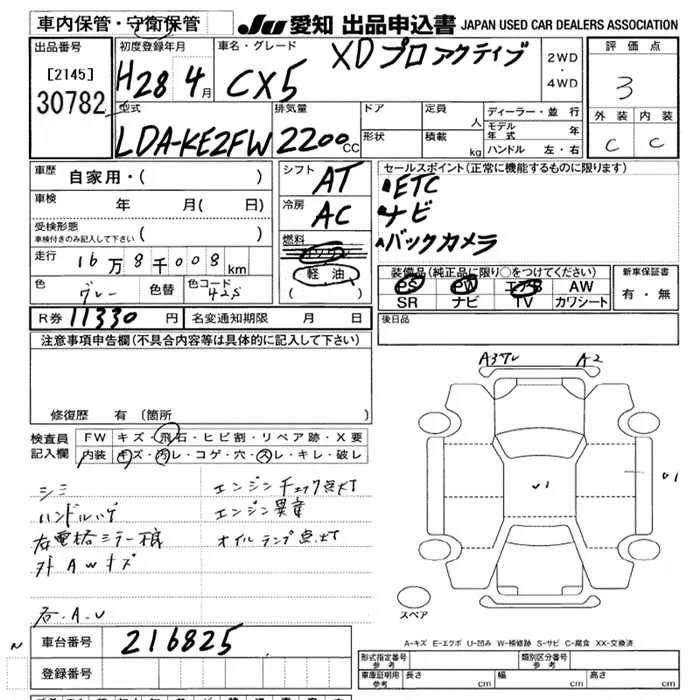 車内保管・守衛保管
JU 愛知 出品申込書 JAPAN USED CAR DEALERS ASSOCIATION
出品番号
[2145]
30782
初度登録年月
H28 4月
車名・グレード
XDプロアクティブ
CX5
2WD
・
4WD
評価点
3
外装 内装
C C
型式
LDA-KE2FW
排気量
2200cc
ドア
形状
定員 人
積載 kg
ディーラー・並行
モデル年式 年
ハンドル 左・右
車歴
自家用・( )
車検
年 月( 日)
受検形態
車検付きのみ記入して下さい ( )
走行
16万8千008km
色
グレー
色替
色コード
42S
シフト
AT
冷房
AC
燃料
軽油
( )
セールスポイント(正常に機能するものに限ります)
ETC
ナビ
バックカメラ
装備品(純正品に限り○をつけてください)
PS PW エアB AW
SR ナビ TV カワシート
新車保証書
有・無
R券 11330円
名変通知期限 月 日
後日品
注意事項申告欄(不具合内容等は具体的に記入して下さい)
修復歴 有 (箇所
検査員
記入欄
FW キズ・飛石・ヒビ割・リペア跡・X要
内装 キズ・汚レ・コゲ・穴・スレ・キレ・破レ
シミ
ハンドルハゲ
外AWキズ
各A.U
エンジンチェック点灯
エンジン異音
オイルランプ点灯
A3サレ
A2
U1
U1
スペア
A-キズ E-エクボ U-凹み W-補修跡 S-サビ C-腐食 XX-交換済
車台番号
216825
登録番号
形式指定番号
参考
類別区分番号
参考
車庫証明用
参考
長さ cm
幅 cm
高さ cm